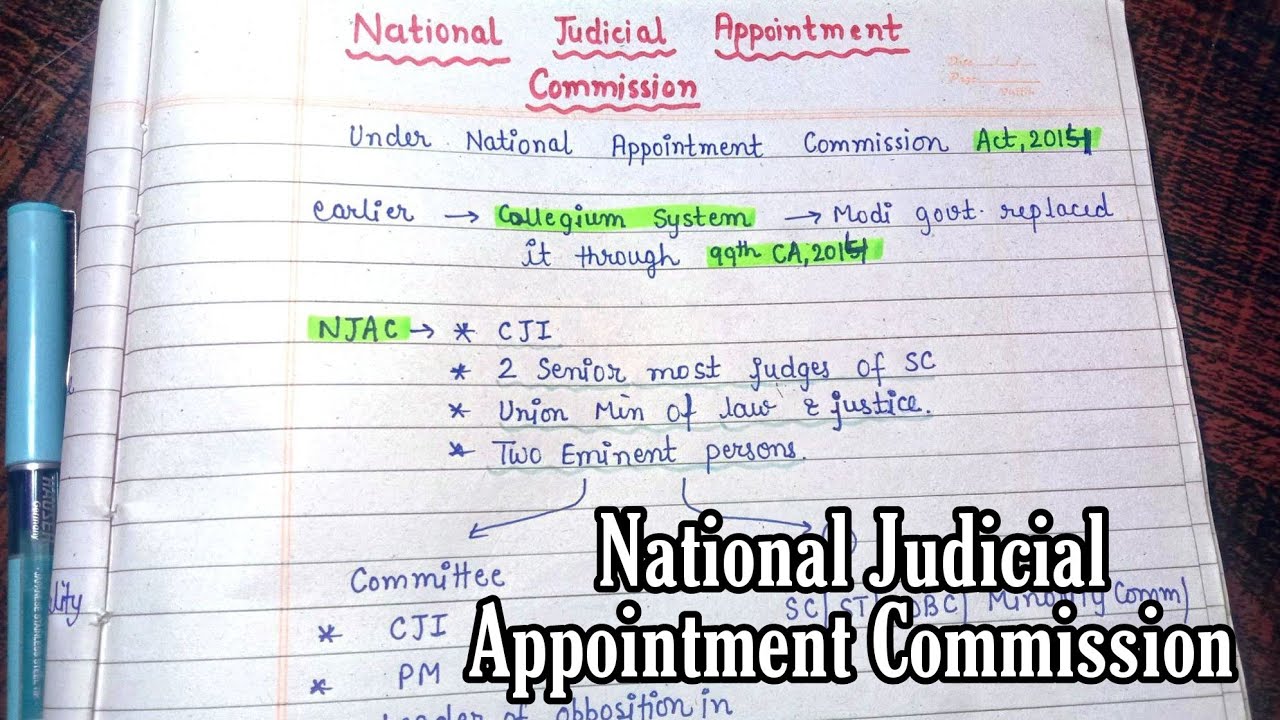 National Judicial Appointment
Commission
Date
Page
Under National Appointment Commission Act, 2014
earlier → Collegium System → Modi govt. replaced
it through 99th CA, 2014
NJAC → * CJI
* 2 Senior most judges of SC
* Union Min of law & justice.
* Two Eminent persons.
Committee
SC/ ST/ OBC/ Minority Comm)
* CJI
* PM
Leader of opposition in
lity
Germany
National Judicial
Appointment Commission